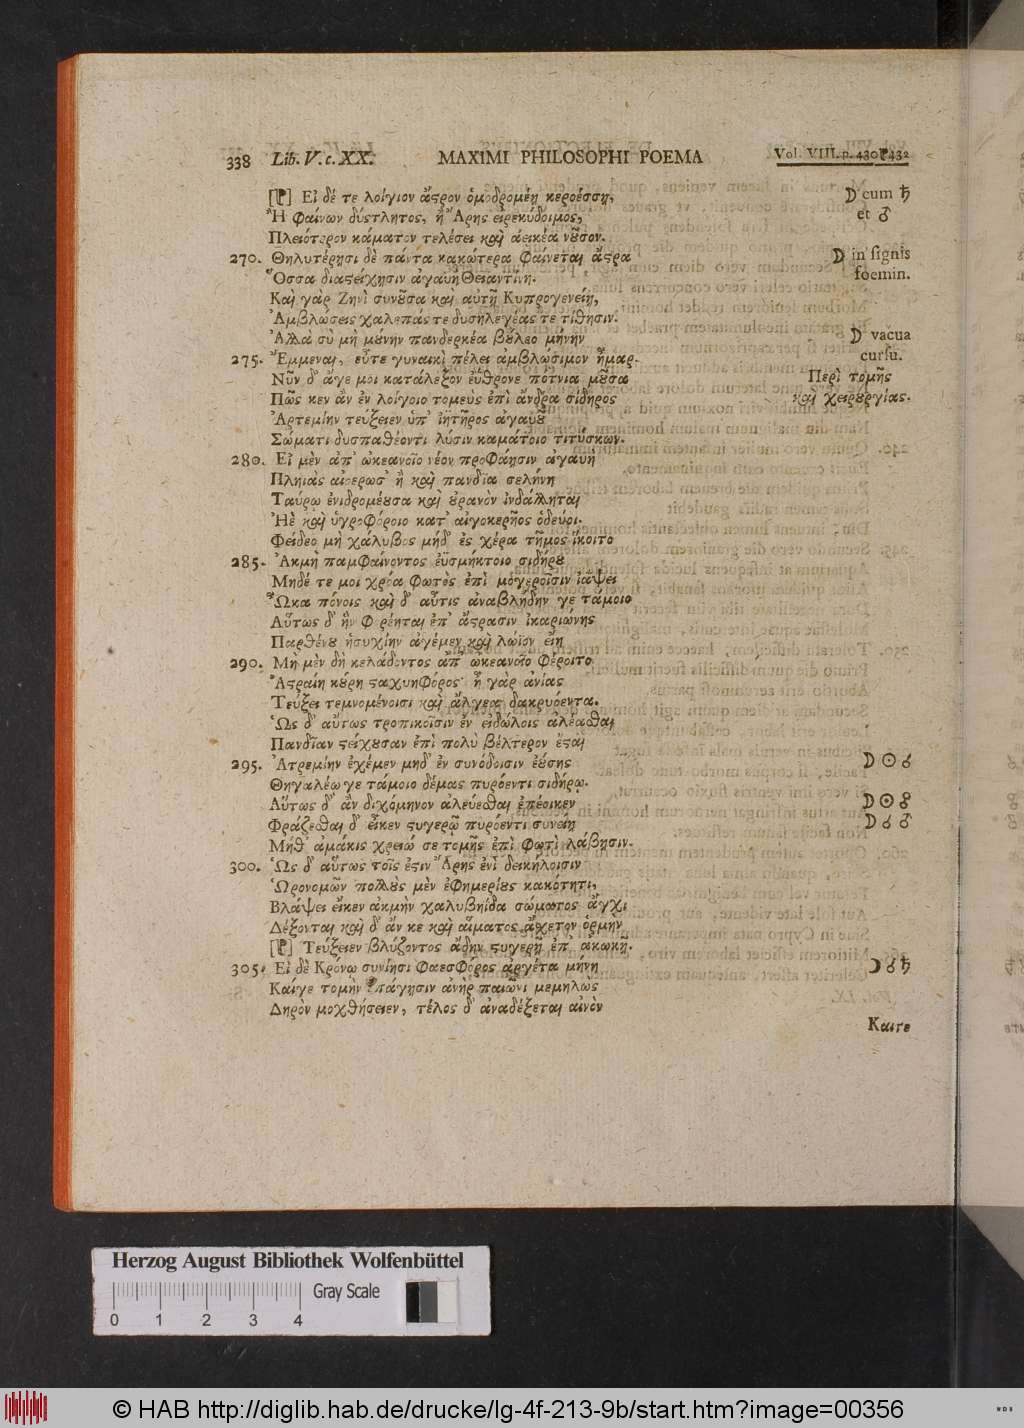 338 Lib. V. c. XX. MAXIMI PHILOSOPHI POEMA Vol. VIII. p. 430 432
Εἰ δέ τε λοίγιον ἄστρον ὁμοδρομέῃ κεροέσσῃ, ☽ cum ♄
Ἢ Φαίνων δύστλητος, ἢ Ἄρης ἐιρεκύδοιμος, et ♂
Πλειότερον κάματον τελέσει καὶ ἀεικέα νοῦσον.
270. Θηλυτέρῃσι δὲ πάντα κακώτερα φαίνεται ἄστρα ☽ in signis
Ὅσσα διαστείχῃσιν ἀγαυὴ Θειαντίνη. foemin.
Καὶ γὰρ Ζηνὶ συνοῦσα καὶ αὐτῇ Κυπρογενείῃ,
Ἀμβλώσεις χαλεπάς τε δυσηλεγέας τε τίθησιν.
Ἀλλὰ σὺ μὴ μούνην πανδερκέα βούλεο μήνην ☽ vacua
275. Ἔμμεναι, εὖτε γυναικὶ πέλει ἀμβλώσιμον ἦμαρ. cursu.
Νῦν δ' ἄγε μοι κατάλεξον ἐΰθρονε πότνια μοῦσα Περὶ τομῆς
Πῶς κεν ἂν ἐν λοίγοιο τομεὺς ἐπὶ ἄνδρα σίδηρος καὶ χειρουργίας.
Ἀρτεμίην τεύξειεν ὑπ' ἰητῆρος ἀγαυοῦ
Σώματι δυσπαθέοντι λύσιν καμάτοιο τιτύσκων.
280. Εἰ μὲν ἀπ' ὠκεανοῖο νέον προφάῃσιν ἀγαυὴ
Πληιὰς ἀφερωσ' ἢ καὶ πανδῖα σελήνη
Ταύρῳ ἐνιδρομέουσα καὶ οὐρανὸν ἰνδάλληται
Ἠὲ καὶ ὑγροφόροιο κατ' αἰγοκερῆος ὁδεύοι.
Φείδεο μὴ χάλυβος μήδ' ἐς χέρα τῆμος ἵκοιτο
285. Ἀκμὴ παμφαίνοντος ἐϋσμήκτοιο σιδήρου
Μηδέ τε μοι χρόα φωτὸς ἐπὶ μογεροῖσιν ἰάψει
Ὦκα πόνοις καὶ δ' αὖτις ἀναβλήδην γε τάμοιο
Αὔτως δ' ἢν φορέηται ἐπ' ἄστρασιν ἰκαριώνης
Παρθένου ἡσυχίην ἀγέμεν καὶ λώϊον εἴη
290. Μὴ μὲν δὴ κελάδοντος ἀπ' ὠκεανοῖο φέροιτο
Ἀστραίη κούρη σταχυηφόρος· ἦ γὰρ ἀνίας
Τεύξει τεμνομένοισι καὶ ἄλγεα δακρυόεντα.
Ὣς δ' αὔτως τροπικοῖσιν ἐν εἰδώλοις ἀλέασθαι
Πανδῖαν στείχουσαν ἐπὶ πολὺ βέλτερον ἔσται
295. Ἀτρεμίην ἐχέμεν μηδ' ἐν συνόδοισιν ἐούσης ☽ ☉ ☌
Θηγαλέῳ γε τάμοιο δέμας πυρόεντι σιδήρῳ.
Αὔτως δ' ἂν διχόμηνον ἀλεύεσθαι ἐπέοικεν ☽ ☉ ☍
Φράζεσθαι δ' εἴκεν στυγερῷ πυρόεντι συνείη ☽ ☌ ♂
Μήθ' ἁμάκις χρειώ σε τομῆς ἐπὶ φωτὶ λάβησιν.
300. Ὣς δ' αὔτως τοῖς ἐστιν Ἄρης ἐνὶ δεικήλοισιν
Ὡρονομῶν πολλοὺς μὲν ἐφημερίους κακότητι,
Βλάψει εἴκεν ἀκμὴν χαλυβηίδα σώματος ἄγχι
Δέξονται καὶ δ' ἄν κε καὶ αἵματος ἄσχετον ὁρμὴν
Τεύξειεν βλύζοντος ἄδην στυγερῇ ἐπ' ἀκωκῇ.
305. Εἰ δὲ Κρόνῳ συνίησι φαεσφόρος ἀργέτα μήνη ☽ ☌ ♄
Καίγε τομὴν ἐπάγησιν ἀνὴρ παιώνι μεμηλὼς
Δηρὸν μοχθήσειεν, τέλος δ' ἀναδέξεται αἰνὸν
Καιγε
Herzog August Bibliothek Wolfenbüttel
Gray Scale
0 1 2 3 4
© HAB http://diglib.hab.de/drucke/lg-4f-213-9b/start.htm?image=00356